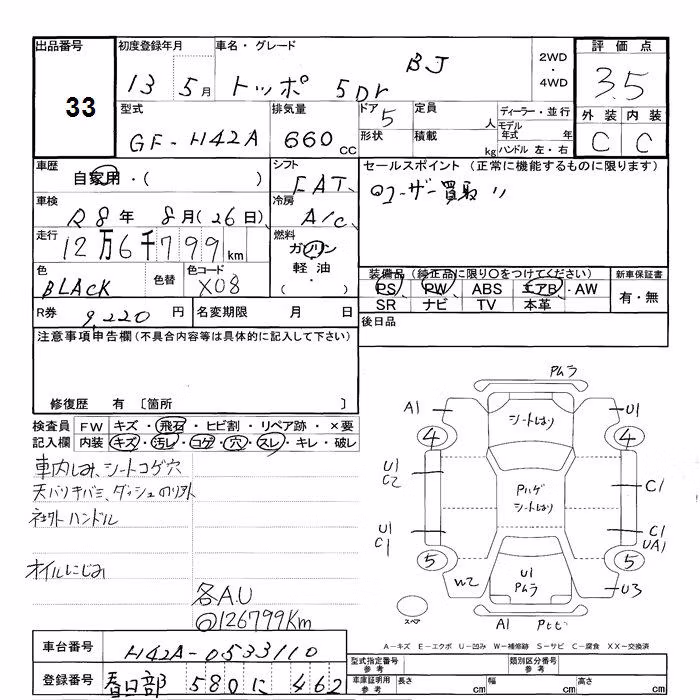 出品番号
33
初度登録年月
13年 5月
車名・グレード
トッポ BJ 5Dr
2WD
・
4WD
評価点
3.5
外装 内装
C C
型式
GF-H42A
排気量
660 CC
ドア 5
形状
定員 人
積載 kg
ディーラー・並行
モデル年式 年
ハンドル 左・右
車歴
自家用・( )
シフト
FAT
セールスポイント (正常に機能するものに限ります)
ユーザー買取
車検
R8年 8月(26日)
冷房
A/C
走行
12万6千799km
燃料
ガソリン
軽油・
( )
色
BLACK
色替
色コード
X08
装備品 (純正品に限り○をつけてください)
PS PW ABS エアB・AW
SR ナビ TV 本革
新車保証書
有・無
R券 9,220 円
名変期限 月 日
後日品
注意事項申告欄(不具合内容等は具体的に記入して下さい)
修復歴 有 〔箇所 〕
検査員記入欄
FW キズ・飛石・ヒビ割・リペア跡・×要
内装 キズ・汚レ・コゲ・穴・スレ・キレ・破レ
車内しみ、シートコゲ穴
天バリキバミ、ダッシュのリアト
社外ハンドル
オイルにじみ
各A.U
@126799Km
Pムラ
A1
U1
シートはり
4
4
U1
C2
C1
Pハゲ
シートはり
U1
C1
C1
UA1
5
5
W2
U1
Pムラ
U3
スペア
A1
Pヒビ
A-キズ E-エクボ U-凹み W-補修跡 S-サビ C-腐食 XX-交換済
車台番号 H42A-0533110
登録番号 春日部 580 に 462
型式指定番号
参考
類別区分番号
参考
車庫証明用
参考
長さ cm
幅 cm
高さ cm